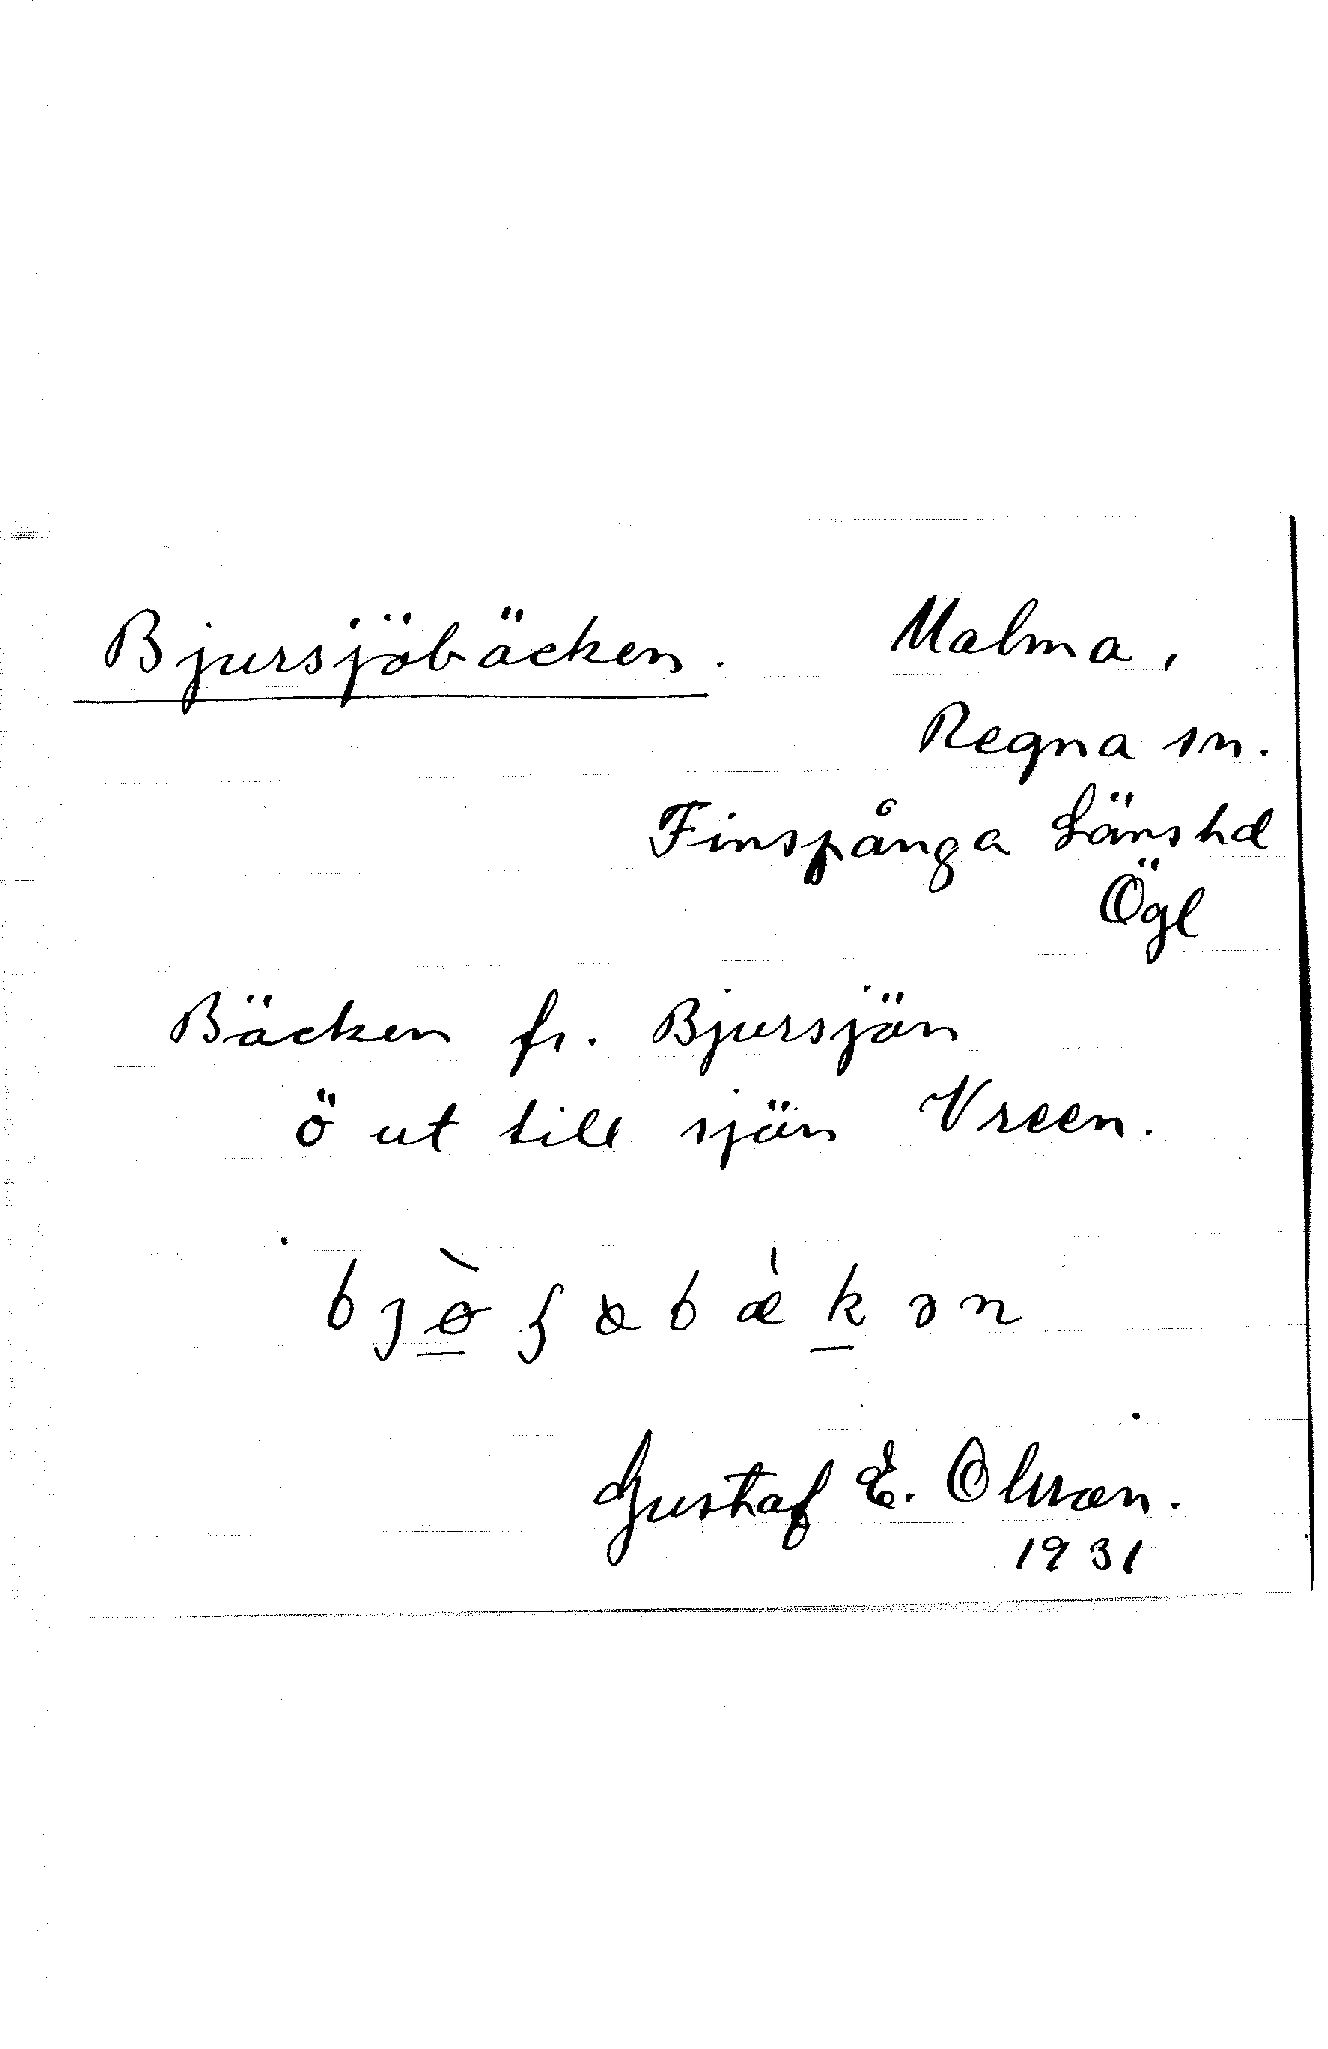 Bjursjöbäcken. Malma,
Regna sn.
Finspånga Länshd
Ögl
Bäcken fr. Bjursjön
ö ut till sjön Vreen.
Gustaf E. Olsson.
1931